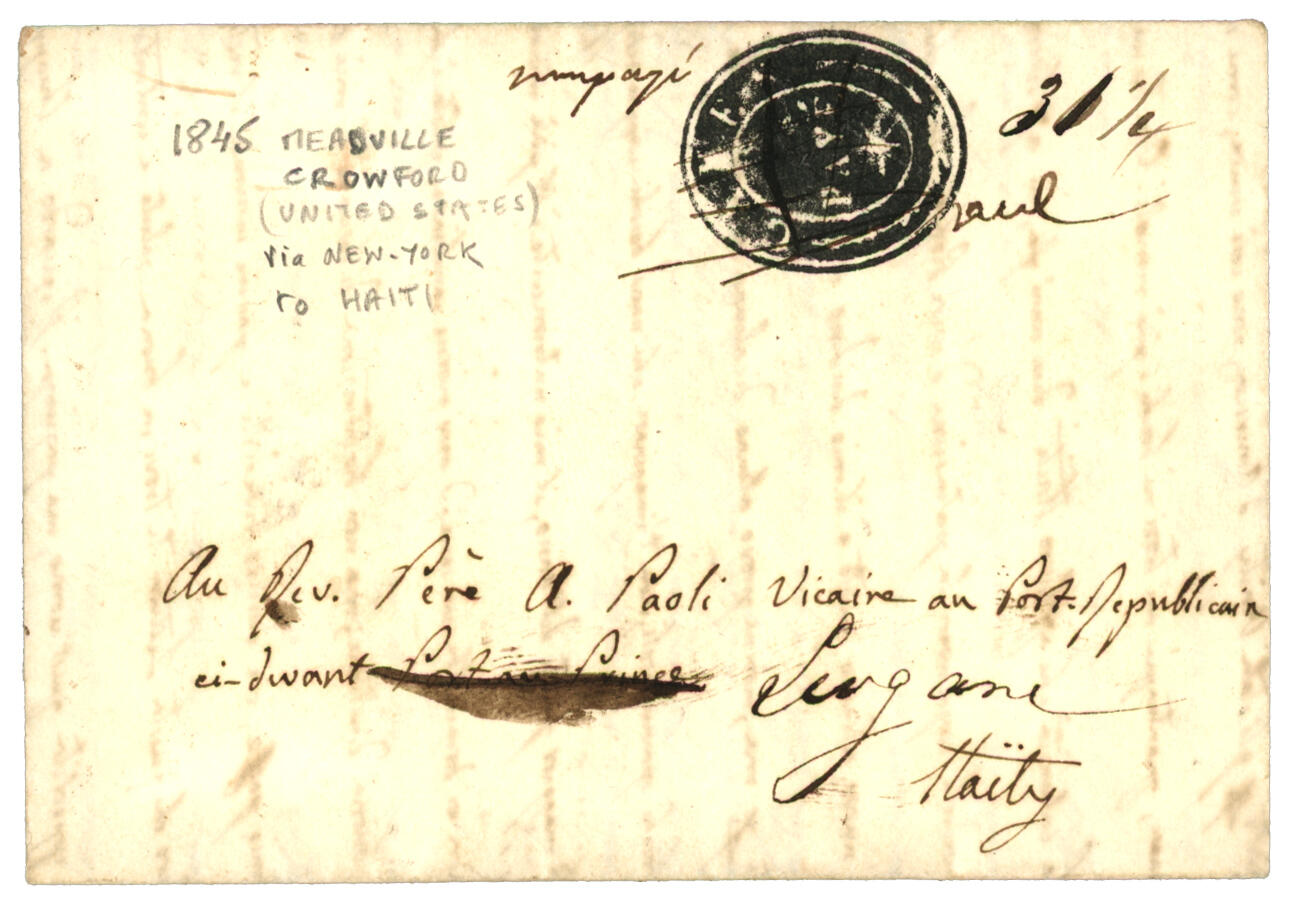 31 1/4
paul
1845 MEADVILLE
CROWFORD
(UNITED STATES)
via NEW-YORK
to HAITI
PAYÉ
Au Rev. Père A. Paoli Vicaire au Port-Republicain
ci-dvant Port au Prince Leogane
Haïty